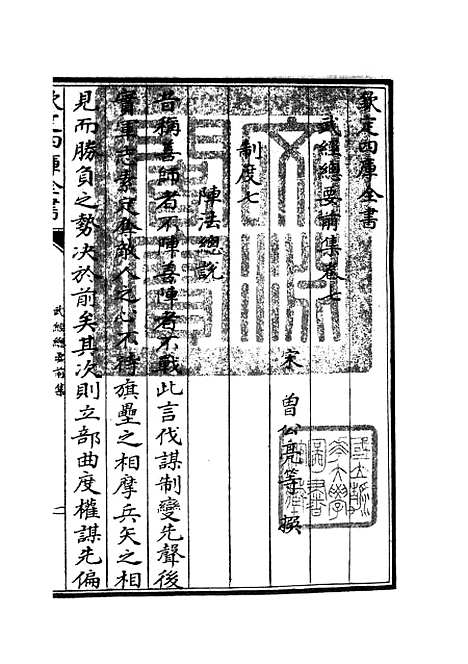 欽定四庫全書
武經總要前集卷七
宋　曾公亮等　撰
制度七
陣法總說
昔稱善師者不陣善陣者不戰此言伐謀制變先聲後
實軍志素定奪敵人之心不待旗壘之相摩兵矢之相
見而勝負之勢決於前矣其次則立部曲度權謀先偏
欽定四庫全書
武經總要前集